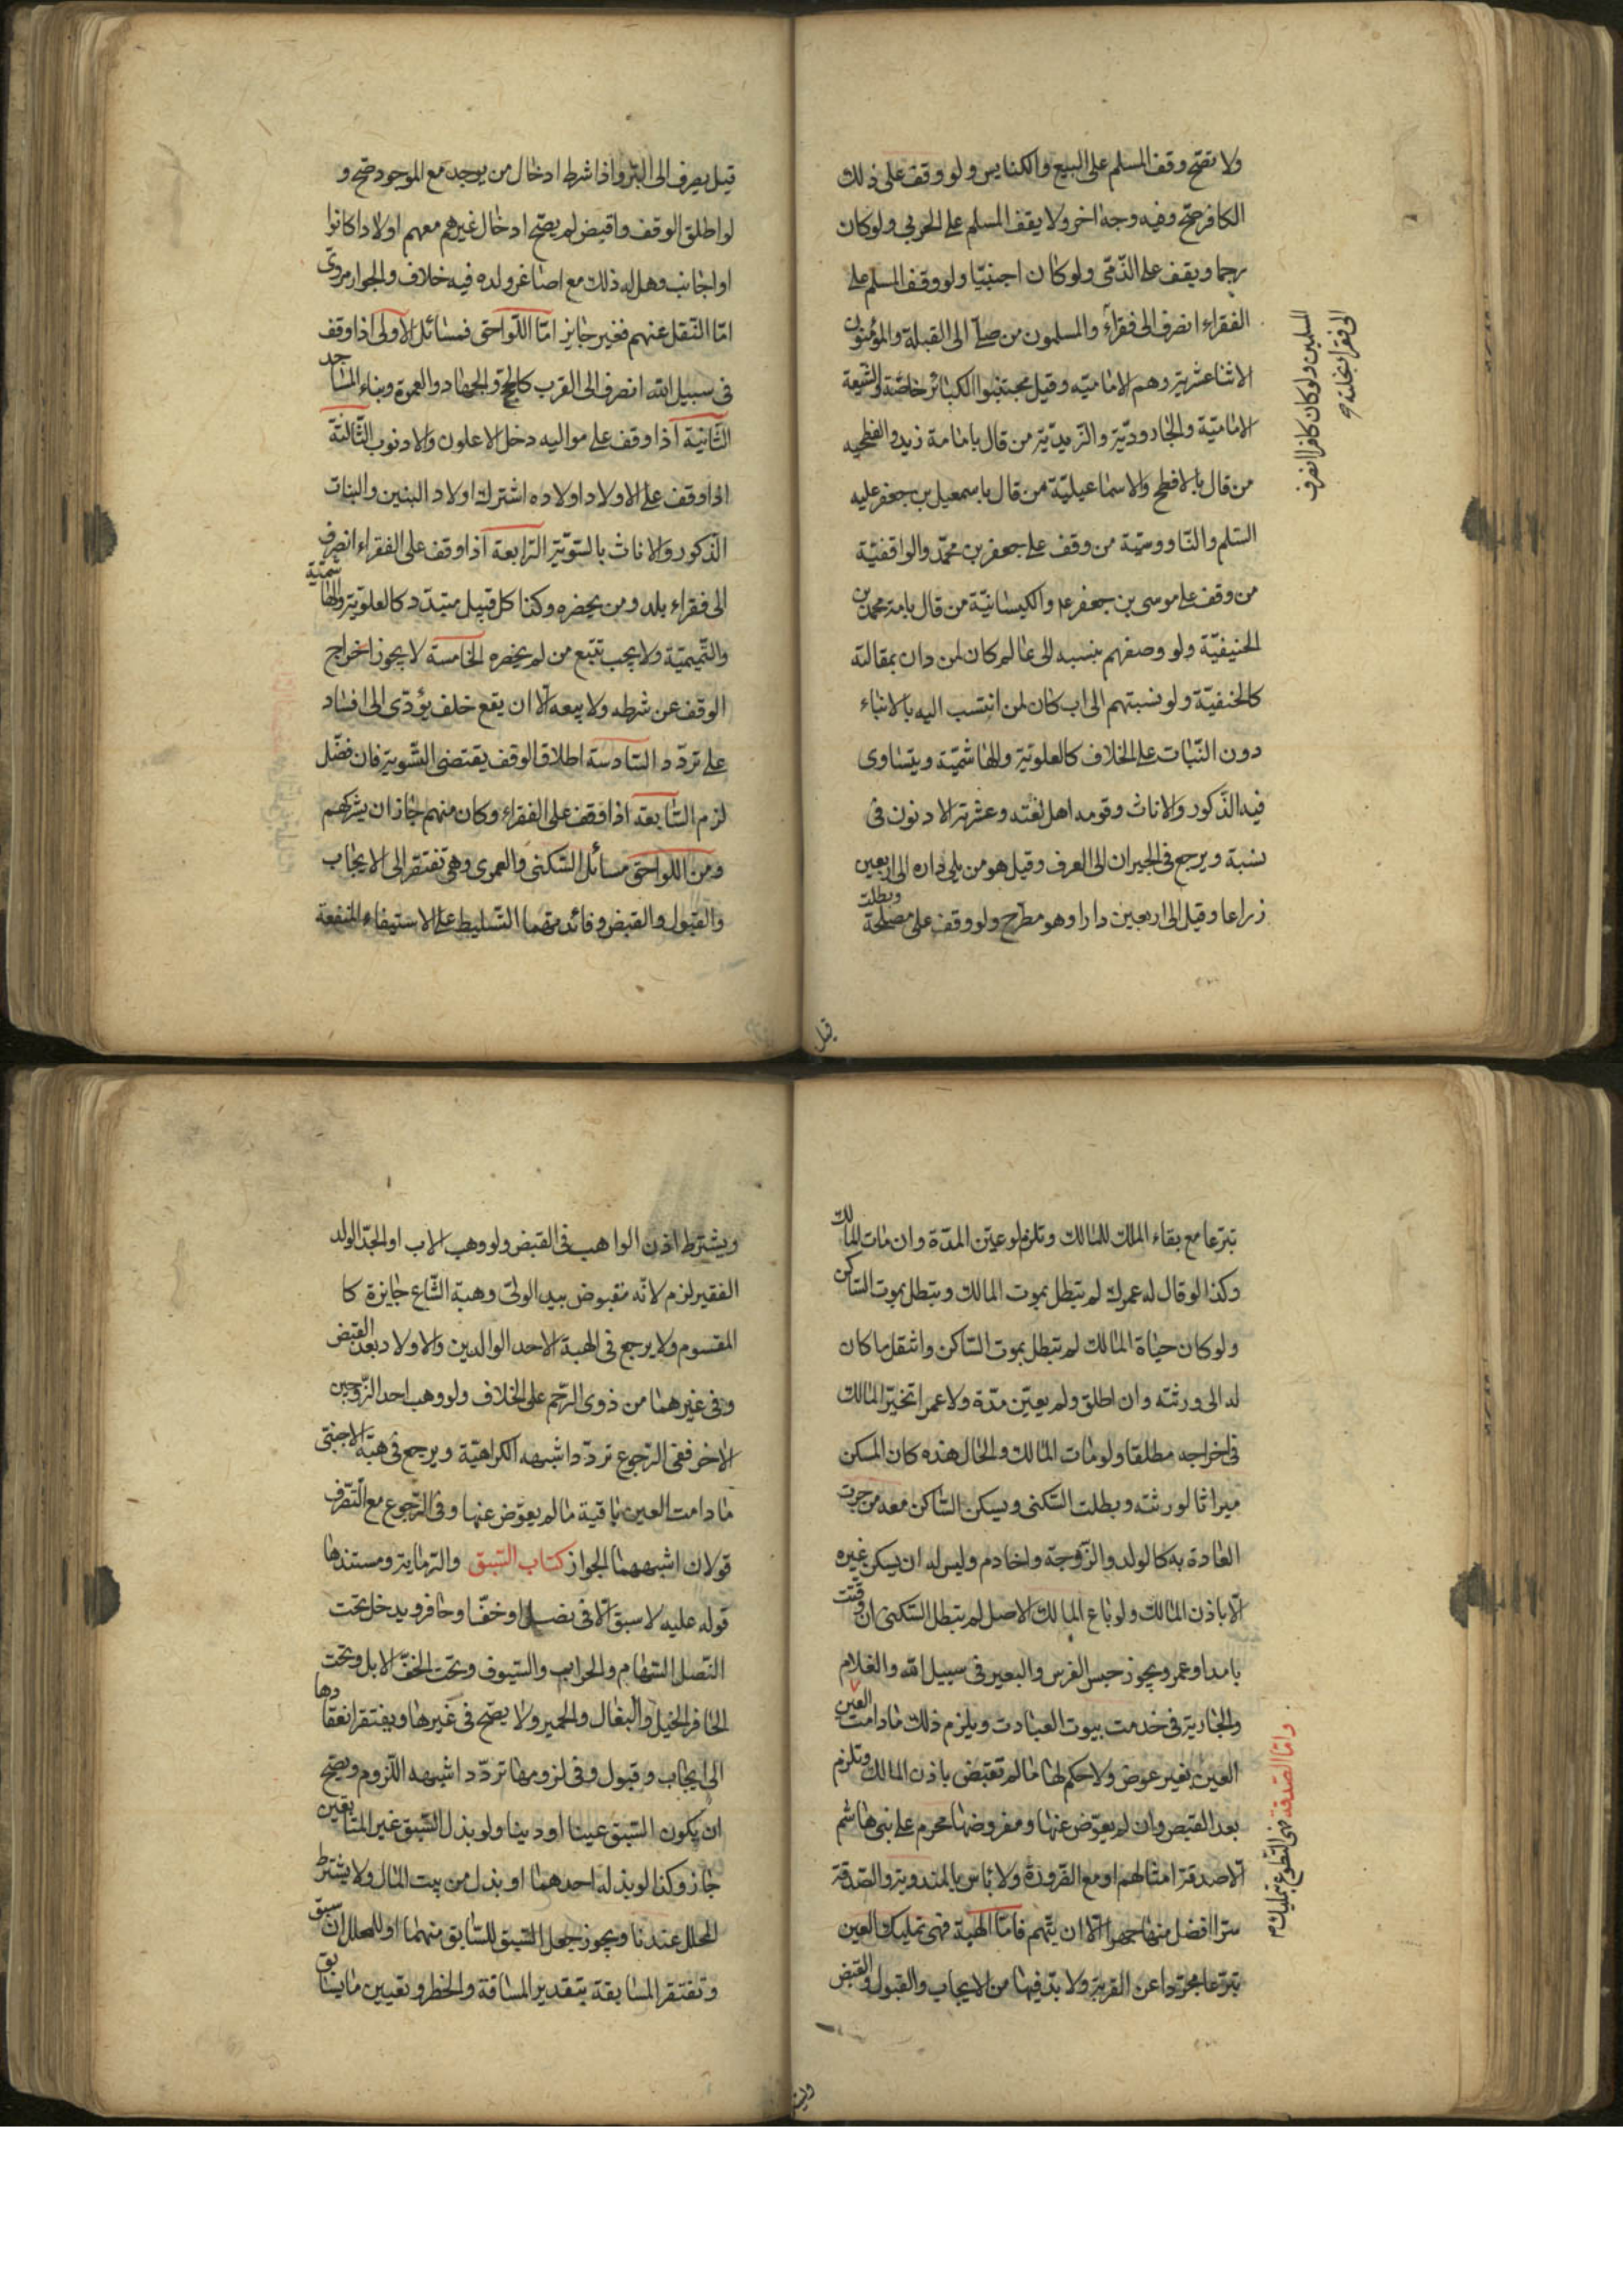 ولا تصح وقف المسلم على البيع والكنايس ولو وقف على ذلك
الكافر صح وفيه وجه اخر ولا يقف المسلم على الحربي ولو كان
رحما ويقف على الذمّى ولو كان اجنبيّا ولو وقف المسلم على
الفقراء انصرف الى فقراء والمسلمون من صلّى الى القبلة والمؤمنون
الاثنا عشرية وهم الاماميّه وقيل مجتنبوا الكبائر خاصّة والشيعة
الاماميّة والجاروديّة والزيديّة من قال بامامة زيد والفطحيه
من قال بالافطح والاسماعيليّة من قال باسمعيل بن جعفر عليه
السلم والناووسيّة من وقف على جعفر بن محمّد والواقفيّة
من وقف على موسى بن جعفر ع والكيسانيّة من قال بامة محمد بن
الحنيفيّة ولو وصفهم بنسبه الى عالم كان لمن دان بمقالته
كالحنفيّة ولو نسبتهم الى اب كان لمن انتسب اليه بالابناء
دون البنات على الخلاف كالعلوية والهاشميّة ويتساوى
فيه الذكور والاناث وقومه اهل لغته وعشرته الادنون فى
نسبة ويرجع فى الجيران الى العرف وقيل هو من يلى داره الى اربعين
ذراعا وقيل الى اربعين دارا وهو مطرح ولو وقف على مصلحة وبطلت
المسلمين ولو كان كافرا انصرف
الى فقراء نحلته صح
قيل
قيل يصرف الى البرّ واذا شرط ادخال من يوجد مع الموجود صح و
لو اطلق الوقف واقبض لم يصحّ ادخال غيرهم معهم اولادا كانوا
او اجانب وهل له ذلك مع اصاغر ولده فيه خلاف والجواز مروىّ
امّا النقل عنهم فغير جايز امّا اللّواحق فمسائل الاولى اذا وقف
فى سبيل الله انصرف الى القرب كالحج والجهاد والعمرة وبناء المساجد
الثانية اذا وقف على مواليه دخل الاعلون والادنون الثّالثة
اذا وقف على الاولاد اولاده اشترك اولاد البنين والبنات
الذكور والاناث بالسّويّة الرابعة اذا وقف على الفقراء انصرف
الى فقراء بلد ومن يحضره وكذا كل قبيل متبدّد كالعلوية والهاشميّة
والتّميميّة ولا يجب تتبّع من لم يحضره الخامسة لا يجوز اخراج
الوقف عن شرطه ولا بيعه الّا ان يقع خلف يؤدّى الى افساد
على تردّد السّادسة اطلاق الوقف يقتضى التّسوية فان فضّل
لزم السّابعة اذا وقف على الفقراء وكان منهم جاز ان يشركهم
ومن اللواحق مسائل السّكنى والعمرى وهى تفتقر الى الايجاب
والقبول والقبض وفائدتهما التسليط على الاستيفاء المنفعة
تبرّعا مع بقاء الملك للمالك وتلزم لو عيّن المدّة وان مات المالك
وكذا لو قال له عمرك لم تبطل بموت المالك وتبطل بموت السّاكن
ولو كان حياة المالك لم تبطل بموت السّاكن وانتقل ما كان
له الى ورثته وان اطلق ولم يعيّن مدّة ولا عمرا تخيّر المالك
فى اخراجه مطلقا ولو مات المالك والحال هذه كان المسكن
ميراثا لورثته وبطلت السّكنى ويسكن السّاكن معه من جرت
العادة به كالولد والزّوجة والخادم وليس له ان يسكن غيره
الّا باذن المالك ولو باع المالك الاصل لم يتبطل السّكنى ان وقّتت
بامد او عمر ويجوز حبس الفرس والبعير فى سبيل الله والغلام
والجارية فى خدمت بيوت العبادت ويلزم ذلك مادامت العين
العين بغير عوض ولا حكم لها ما لم تقبض باذن المالك وتلزم
بعد القبض وان لم يعوّض عنها ومفروضها محرم على بنى هاشم
الّا صدقة امثالهم او مع الضرورة ولا باس بالمندوبة والصّدقة
سرّا افضل منها جهرا الّا ان يتّهم فامّا الهبة فهى تمليك العين
تبرّعا مجرّدا عن القربة ولا بدّ فيها من الايجاب والقبول والقبض
وامّا الصّدقة فهى التطوع بتمليك م
ويشترط
ويشترط اذن الواهب فى القبض ولو وهب الاب او الجدّ الولد
الفقير لزم لانّه مقبوض بيد الولىّ وهبة المشاع جايزة كا
المقسوم ولا يرجع فى الهبة الاحد الوالدين والاولاد بعد القبض
وفى غيرهما من ذوى الرّحم على الخلاف ولو وهب احد الزّوجين
الاخر ففى الرّجوع تردّد اشبهه الكراهيّة ويرجع فى هبة الاجنبّى
مادامت العين باقية ما لم يعوّض عنها وفى الرّجوع مع التصّرف
قولان اشبههما الجواز كتاب السّبق والرّماية ومستندها
قوله عليه لا سبق الّا فى نصل او خفّ او حافر ويدخل تحت
النّصل السّهام والحراب والسّيوف وتحت الخفّ الابل وتحت
الحافر الخيل والبغال والحمير ولا يصّح فى غيرها ويفتقر انعقادها
الى ايجاب وقبول وفى لزومها تردّد اشبهه اللّزوم ويصّح
ان يكون السّبق عينا او دينا ولو بذل السّبق غير المتابقين
جاز وكذا لو بذله احدهما او بذل من بيت المال ولا يشترط
المحلل عندنا ويجوز جعل السّبق للسّابق منهما او للمحلل ان سبق
وتفتقر المسابقة بتقدير المسافة والخطر وتعيين ما يسابق